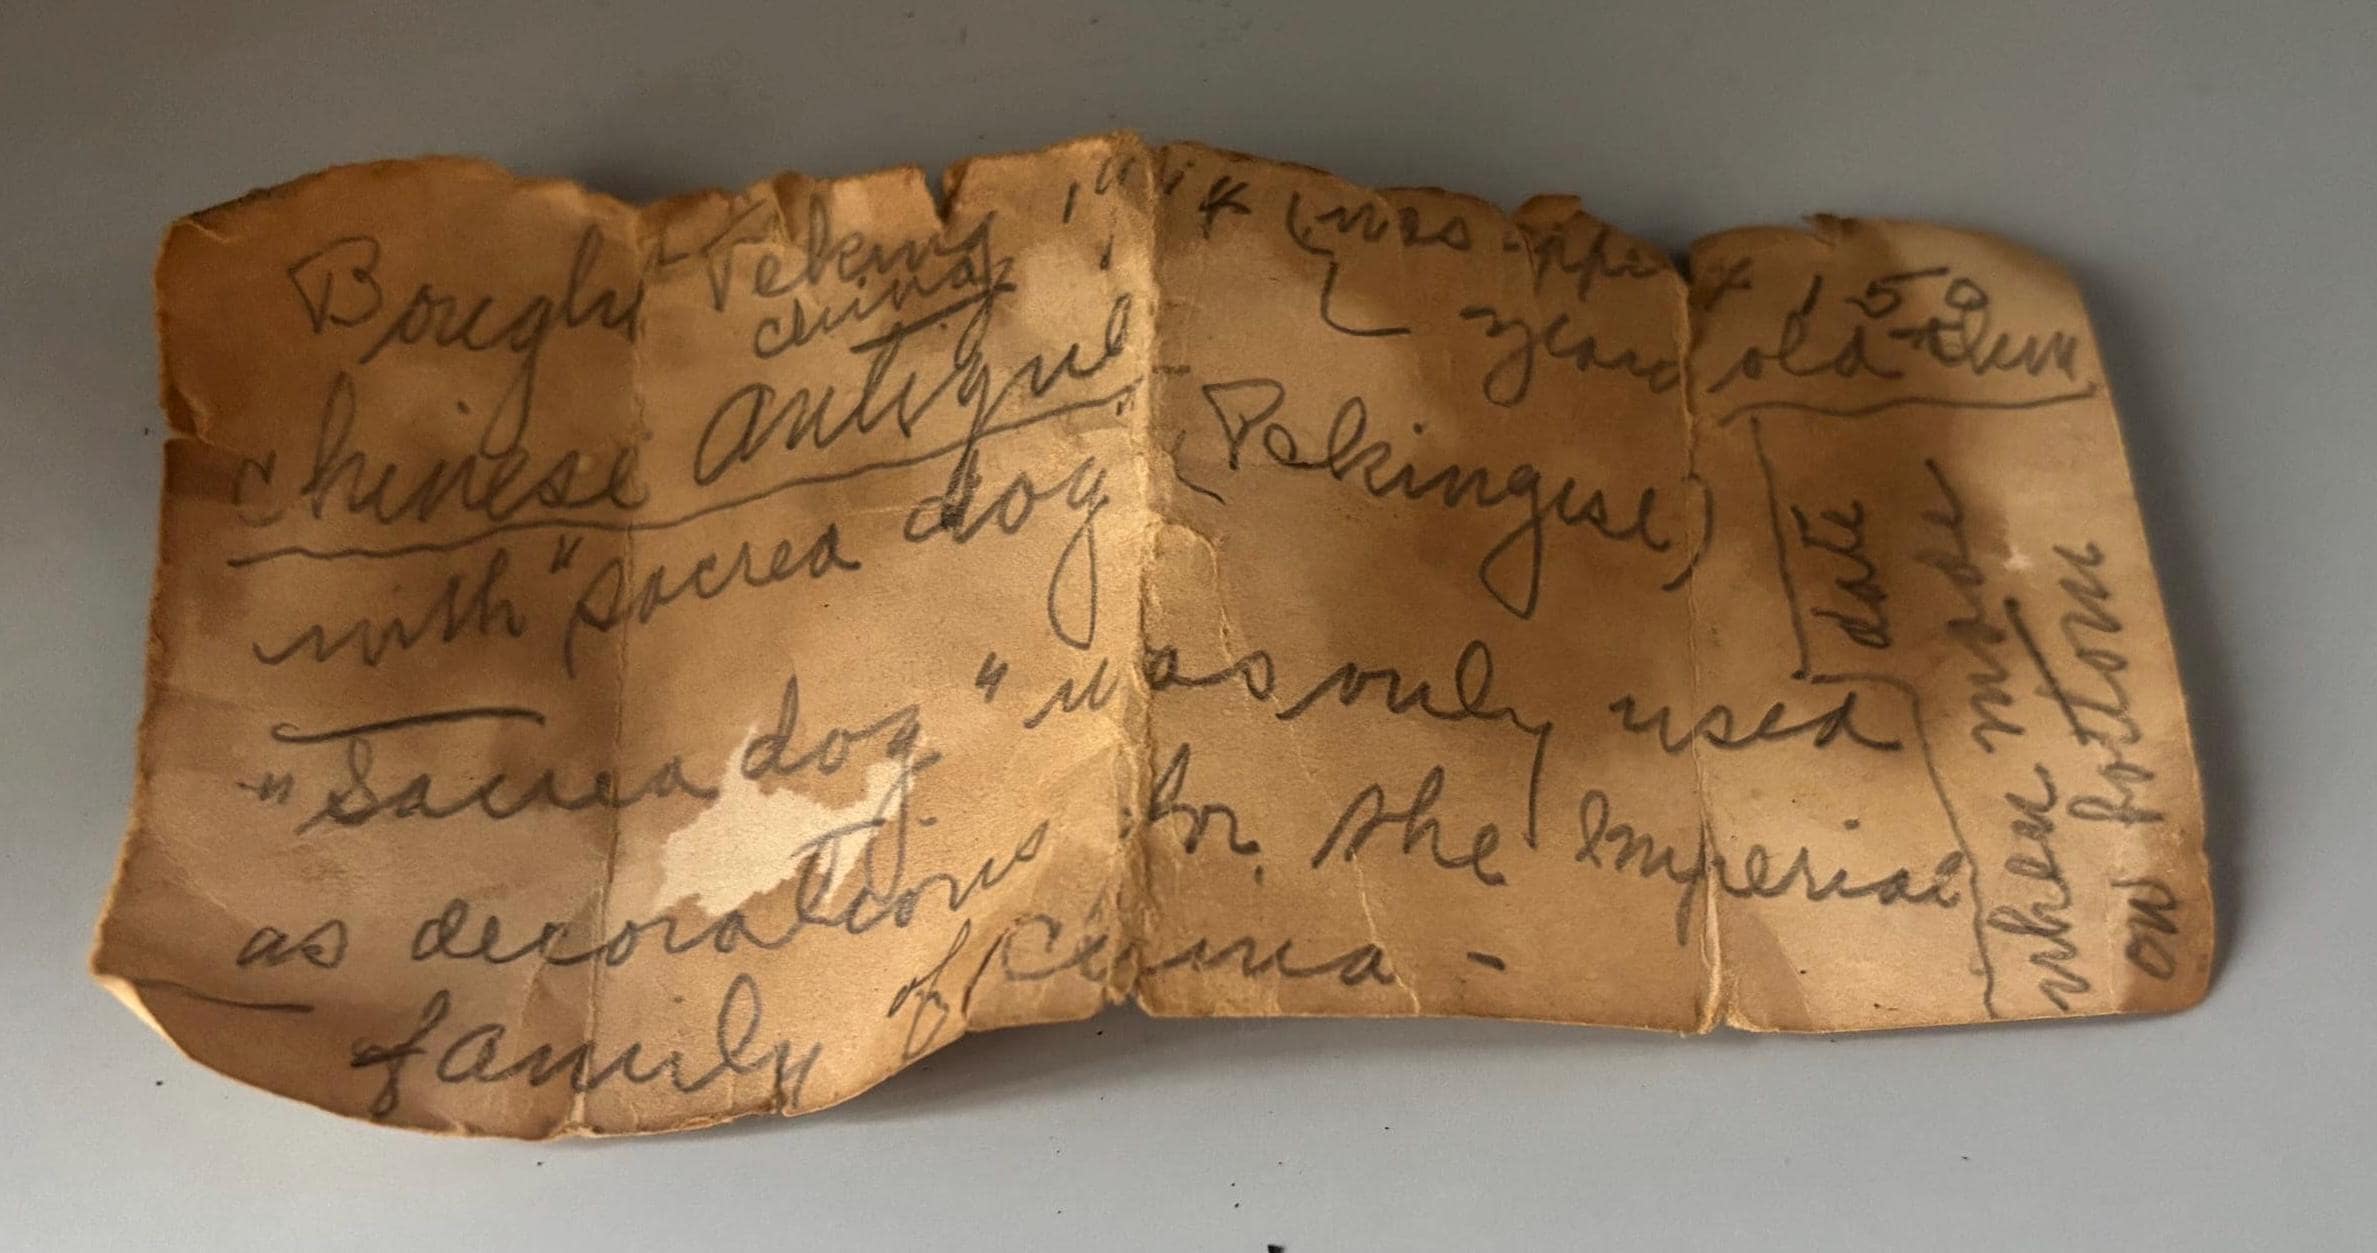 Bought Peking
China
(was approx 150
years old then
Chinese Antique
with "sacred dog (Pekingese)
"Sacred dog" was only used
as decorations for the Imperial
family of China -
date
when made
on bottom